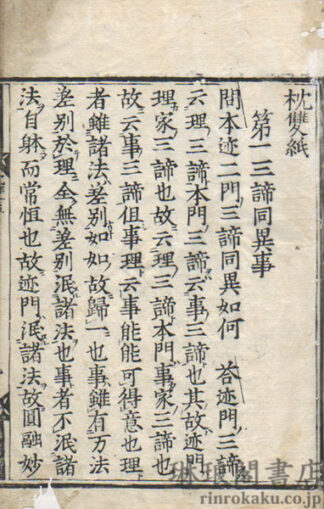 枕雙紙
第一三諦同異事
問本迹二門三諦同異如何　荅迹門三諦
云理三諦本門三諦云事三諦也其故迹門
理家三諦也故云理三諦本門事家三諦也
故云事三諦但事理云事能能可得意也理
者雖諸法差別如如故歸一也事雖有万法
差別於理全無差別泯諸法也事者不泯諸
法自躰而常恒也故迹門泯諸法故圓融妙
琳琅閣書店
rinrokaku.co.jp